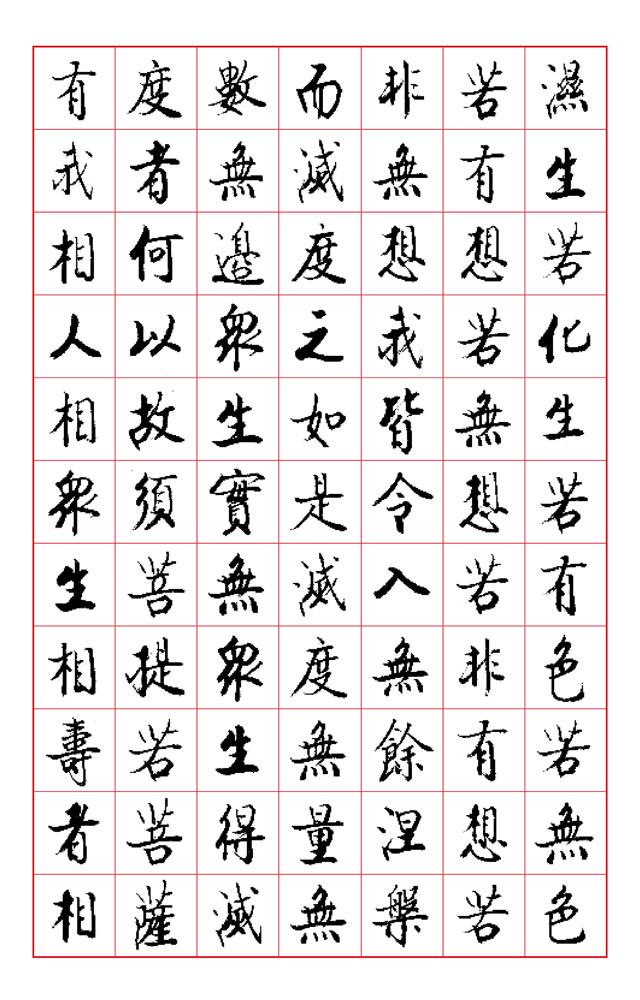 濕生若化生若有色若無色
若有想若無想若非有想若
非無想我皆令入無餘涅槃
而滅度之如是滅度無量無
數無邊衆生實無衆生得滅
度者何以故須菩提若菩薩
有我相人相衆生相壽者相